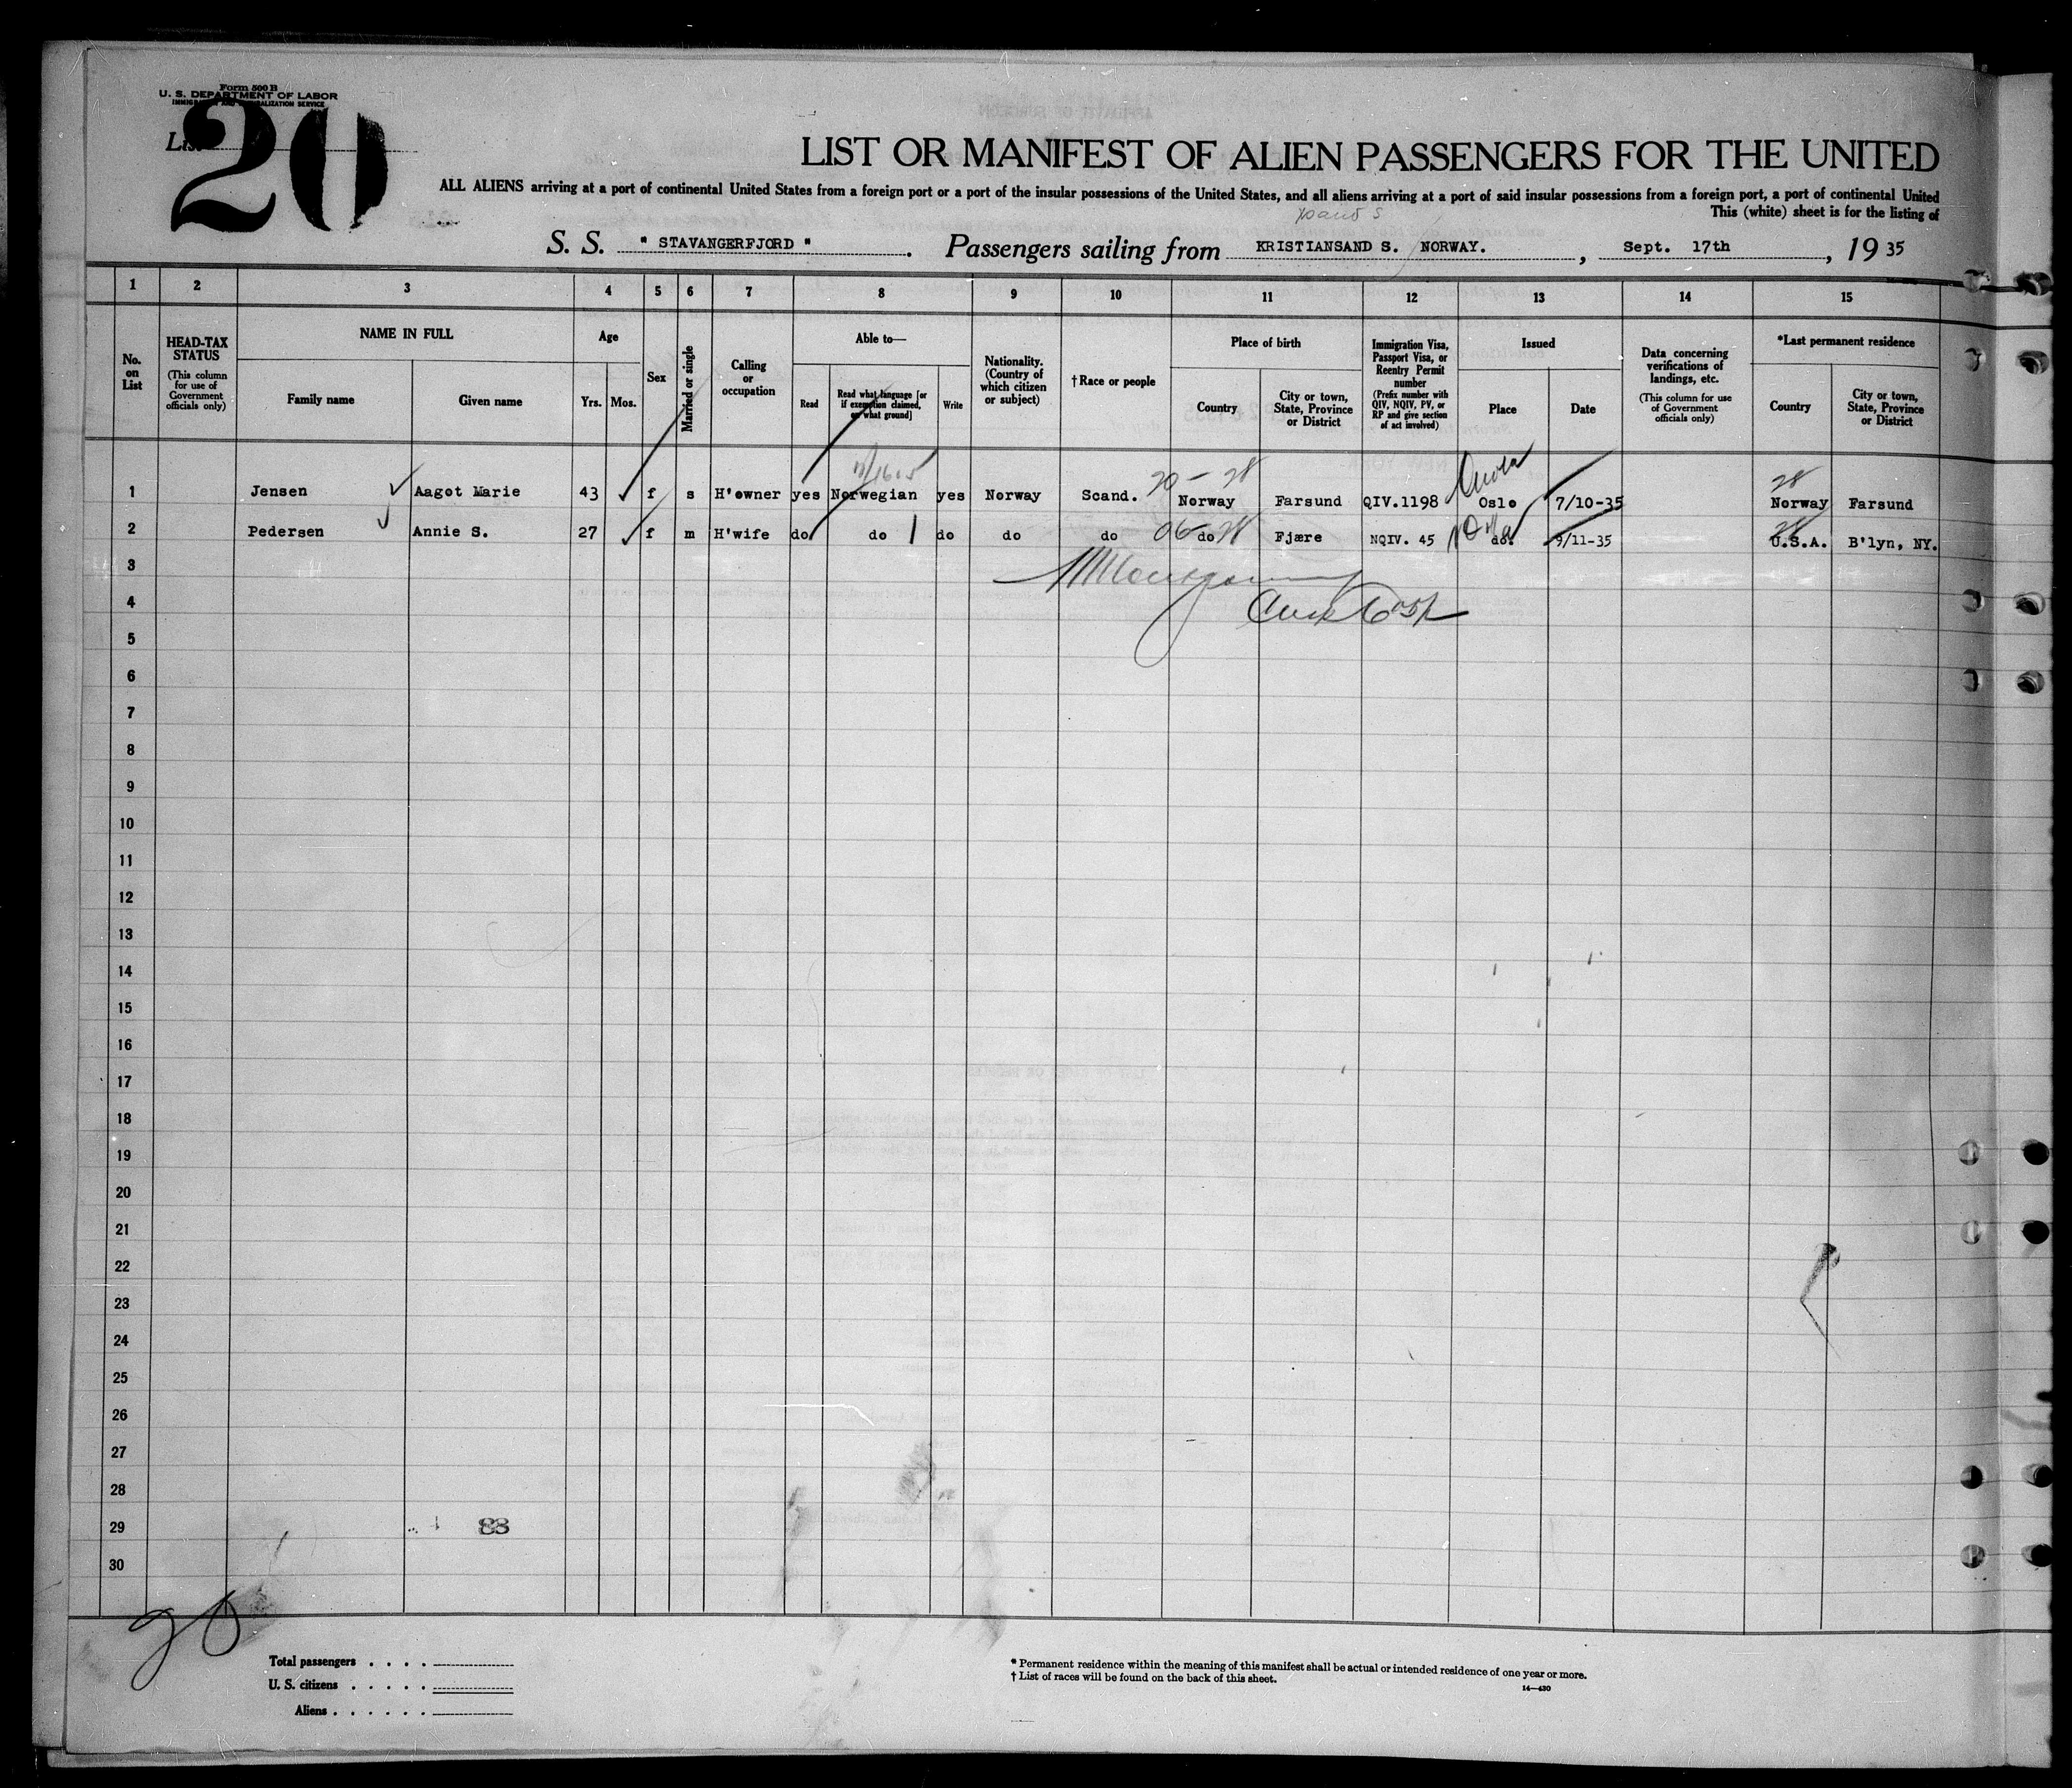 Form 500 B
U. S. DEPARTMENT OF LABOR
IMMIGRATION AND NATURALIZATION SERVICE
List 20
LIST OR MANIFEST OF ALIEN PASSENGERS FOR THE UNITED
ALL ALIENS arriving at a port of continental United States from a foreign port or a port of the insular possessions of the United States, and all aliens arriving at a port of said insular possessions from a foreign port, a port of continental United
This (white) sheet is for the listing of
S. S. " STAVANGERFJORD ". Passengers sailing from KRISTIANSAND S. NORWAY. , Sept. 17th , 19 35
1 2 3 4 5 6 7 8 9 10 11 12 13 14 15
No. on List
HEAD-TAX STATUS (This column for use of Government officials only)
NAME IN FULL
Family name
Given name
Age
Yrs.
Mos.
Sex
Married or single
Calling or occupation
Able to—
Read
Read what language [or if exemption claimed, on what ground]
Write
Nationality. (Country of which citizen or subject)
† Race or people
Place of birth
Country
City or town, State, Province or District
Immigration Visa, Passport Visa, or Reentry Permit number (Prefix number with QIV, NQIV, PV, or RP and give section of act involved)
Issued
Place
Date
Data concerning verifications of landings, etc. (This column for use of Government officials only)
*Last permanent residence
Country
City or town, State, Province or District
1 Jensen Aagot Marie 43 f s H'owner yes Norwegian yes Norway Scand. 20 - 28 Norway Farsund QIV.1198 Oslo 7/10-35 28 Norway Farsund
2 Pedersen Annie S. 27 f m H'wife do do do do do 06 28 do Fjære NQIV. 45 do. 9/11-35 28 U.S.A. B'lyn, NY.
3
4
5
6
7
8
9
10
11
12
13
14
15
16
17
18
19
20
21
22
23
24
25
26
27
28
29 83
30
20
Total passengers . . . .
U. S. citizens . . . . .
Aliens . . . . . .
* Permanent residence within the meaning of this manifest shall be actual or intended residence of one year or more.
† List of races will be found on the back of this sheet.
14—430